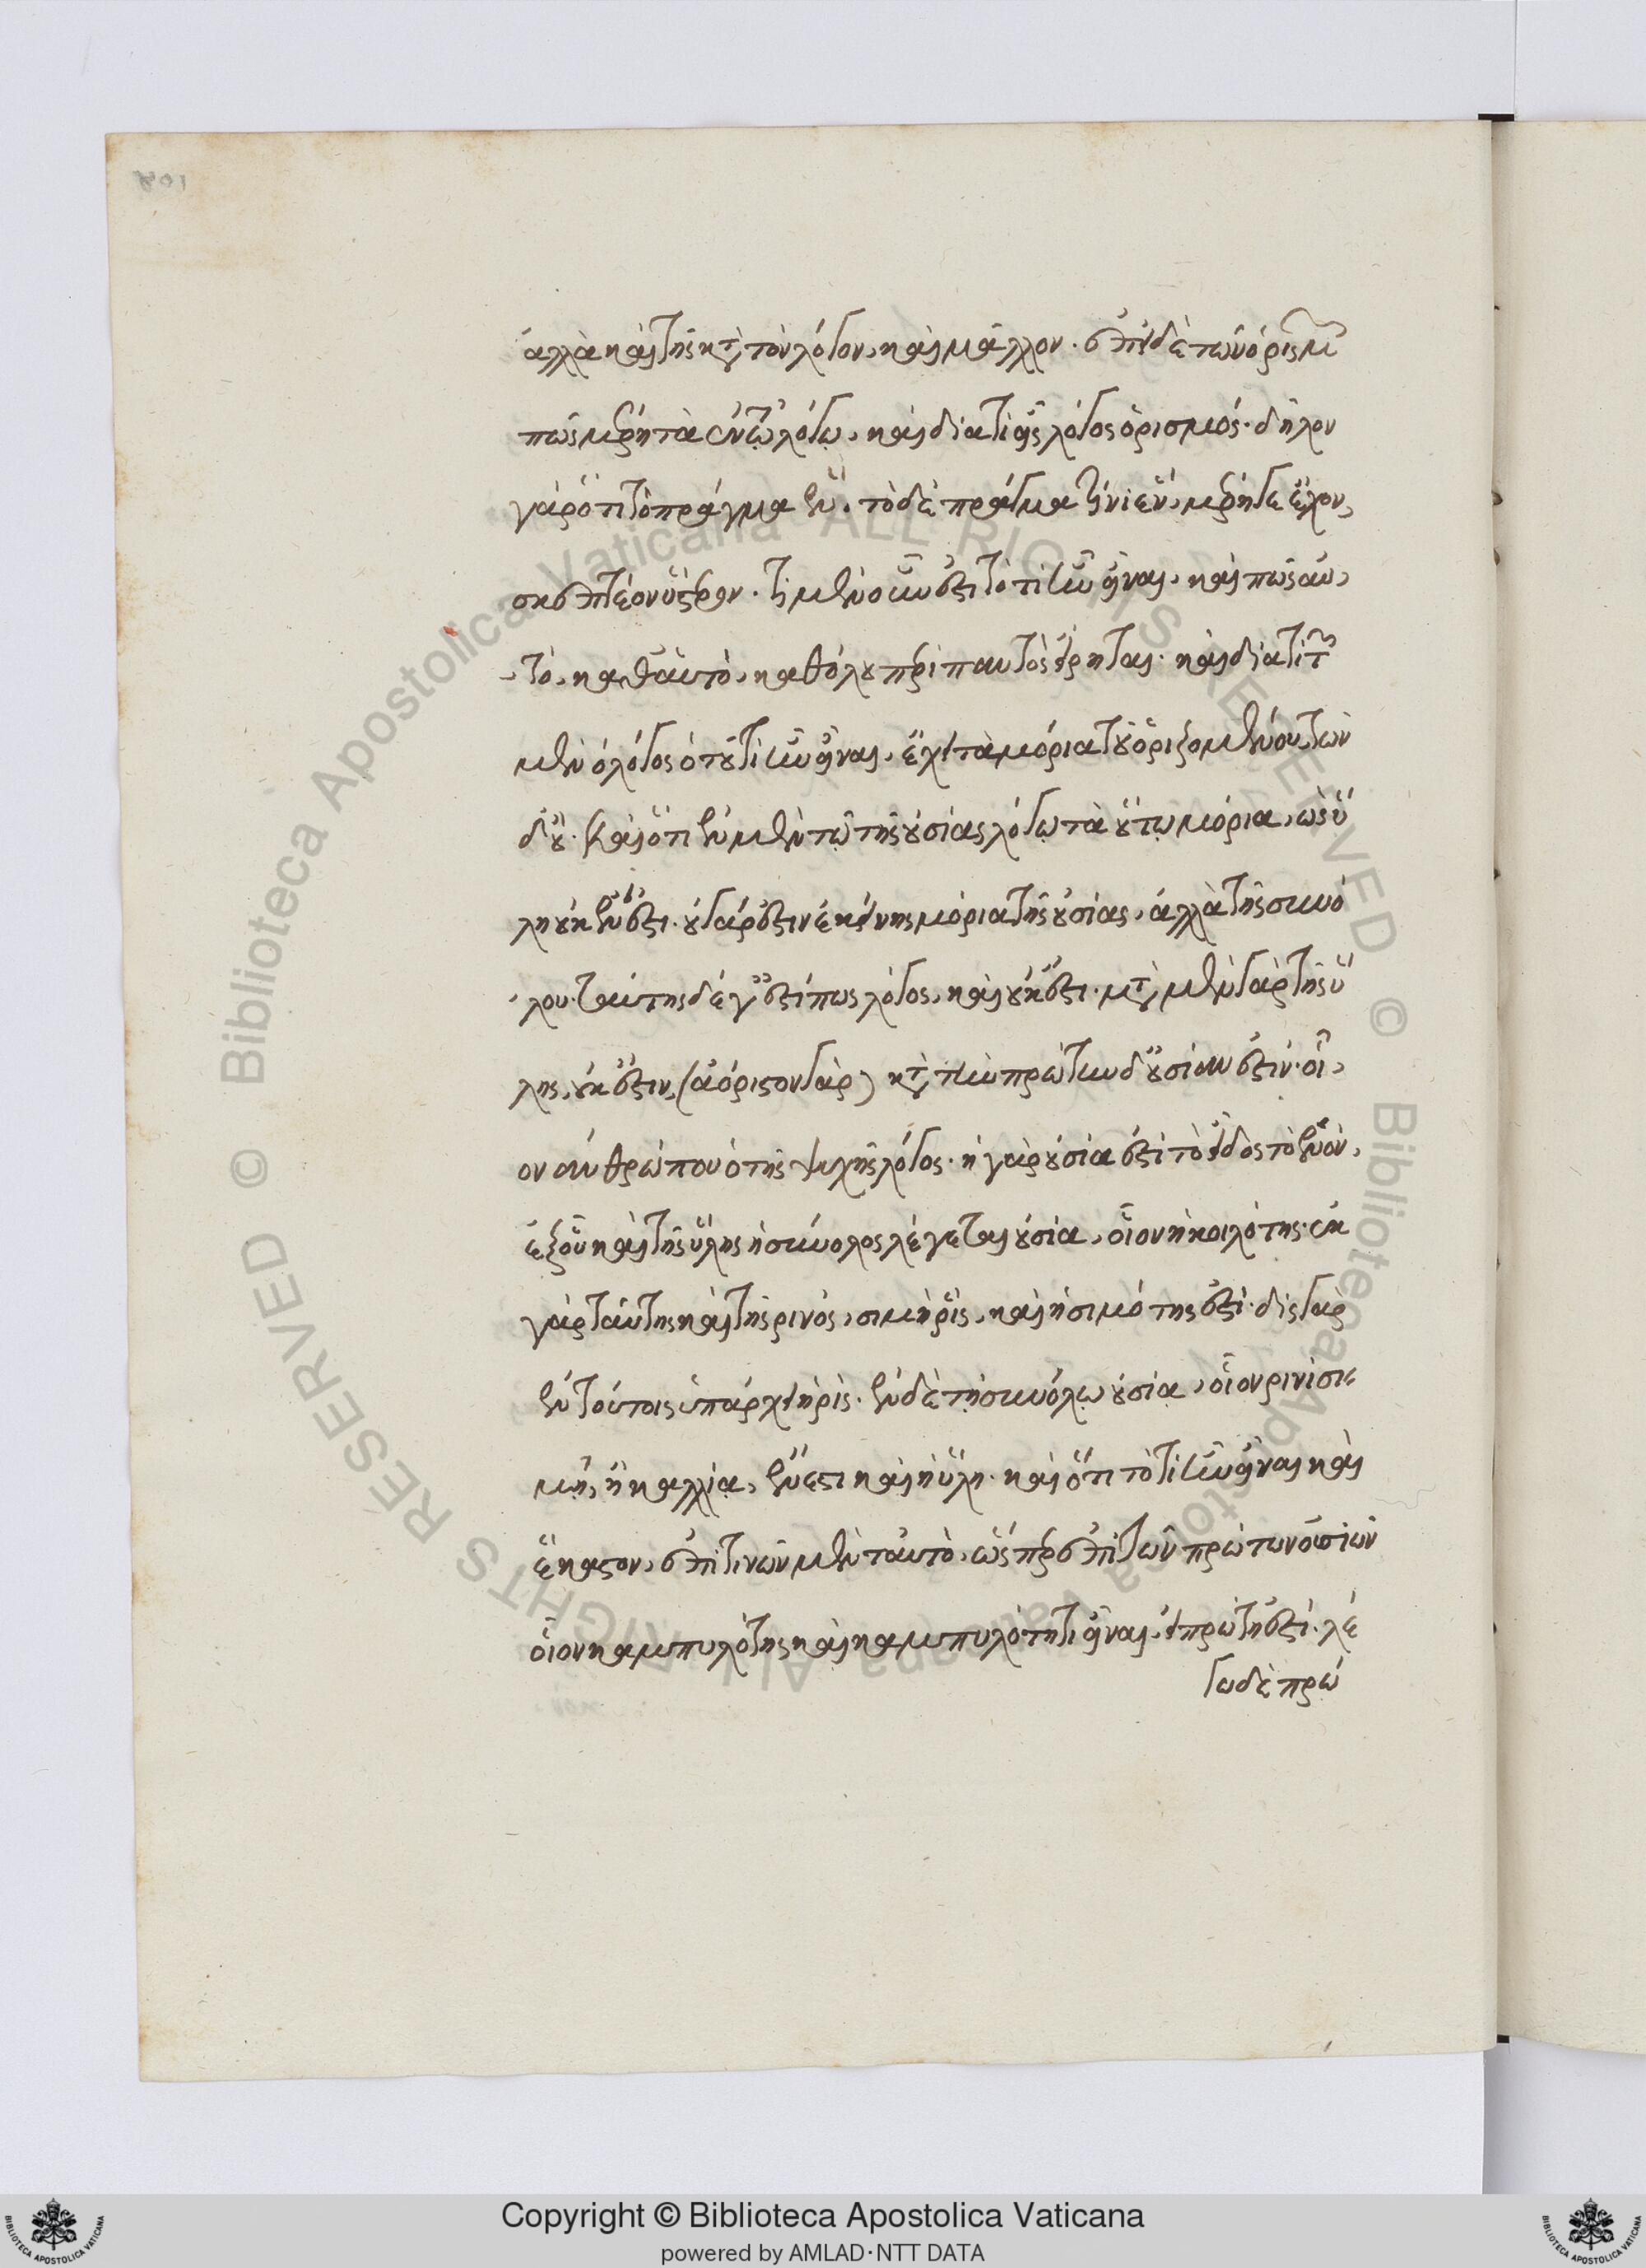 ἀλλὰ καὶ τῆς κατὰ τὸν λόγον, καὶ μᾶλλον. ἐπεὶ δὲ τῶν ὁρισμῶν
πῶς μέρη τὰ ἐν τῷ λόγῳ, καὶ διατί εἷς λόγος ὁρισμός· δῆλον
γὰρ ὅτι τὸ πράγμα ἕν. τὸ δὲ πρᾶγμα τίνι ἕν, μέρη γε ἔχον,
σκεπτέον ὕστερον. τί μὲν οὖν ἐστι τὸ τί ἦν εἶναι, καὶ πῶς αὐ
τὸ, καθ' αὑτὸ, καθόλου περὶ παντὸς εἴρηται. καὶ διατί τῶν
μὲν ὁ λόγος ὁ τοῦ τί ἦν εἶναι, ἔχει τὰ μόρια τοῦ ὁριζομένου, τῶν
δ' οὔ. Καὶ ὅτι ἐν μὲν τῷ τῆς οὐσίας λόγῳ τὰ οὕτω μόρια, ὡς ὕ
λη οὐκ ἐνέσται. οὐ γάρ ἐστιν ἐκείνης μόρια τῆς οὐσίας, ἀλλὰ τῆς συνό
λου. ταύτης δέ γ' ἐστί πως λόγος, καὶ οὐκ ἔστι. μετὰ μὲν γὰρ τῆς ὕ
λης, οὐκ ἔστιν, (ἀόριστον γὰρ) κατὰ τὴν πρώτην δ' οὐσίαν ἐστίν. οἷ
ον ἀνθρώπου ὁ τῆς ψυχῆς λόγος. ἡ γὰρ οὐσία ἐστὶ τὸ εἶδος τὸ ἐνὸν,
ἐξ οὗ καὶ τῆς ὕλης ἡ σύνολος λέγεται οὐσία, οἷον ἡ κοιλότης. ἐκ
γὰρ ταύτης καὶ τῆς ρινός, σιμὴ ῥὶς, καὶ ἡ σιμότης ἐστί. δὶς γὰρ
ἐν τούτοις ὑπάρχει ἡ ρίς. ἐν δὲ τῇ συνόλῳ οὐσίᾳ, οἷον ρινὶ σι
μῇ, ἢ καλλίᾳ, ἔνεστι καὶ ἡ ὕλη. καὶ ὅτι τὸ τί ἦν εἶναι καὶ
ἕκαστον, ἐπὶ τινῶν μὲν ταυτὸ, ὥσπερ ἐπὶ τῶν πρώτων οὐσιῶν
οἷον καμπυλότης καὶ καμπυλότητι εἶναι, εἰ πρώτη ἐστί. λέ
γω δὲ πρώ